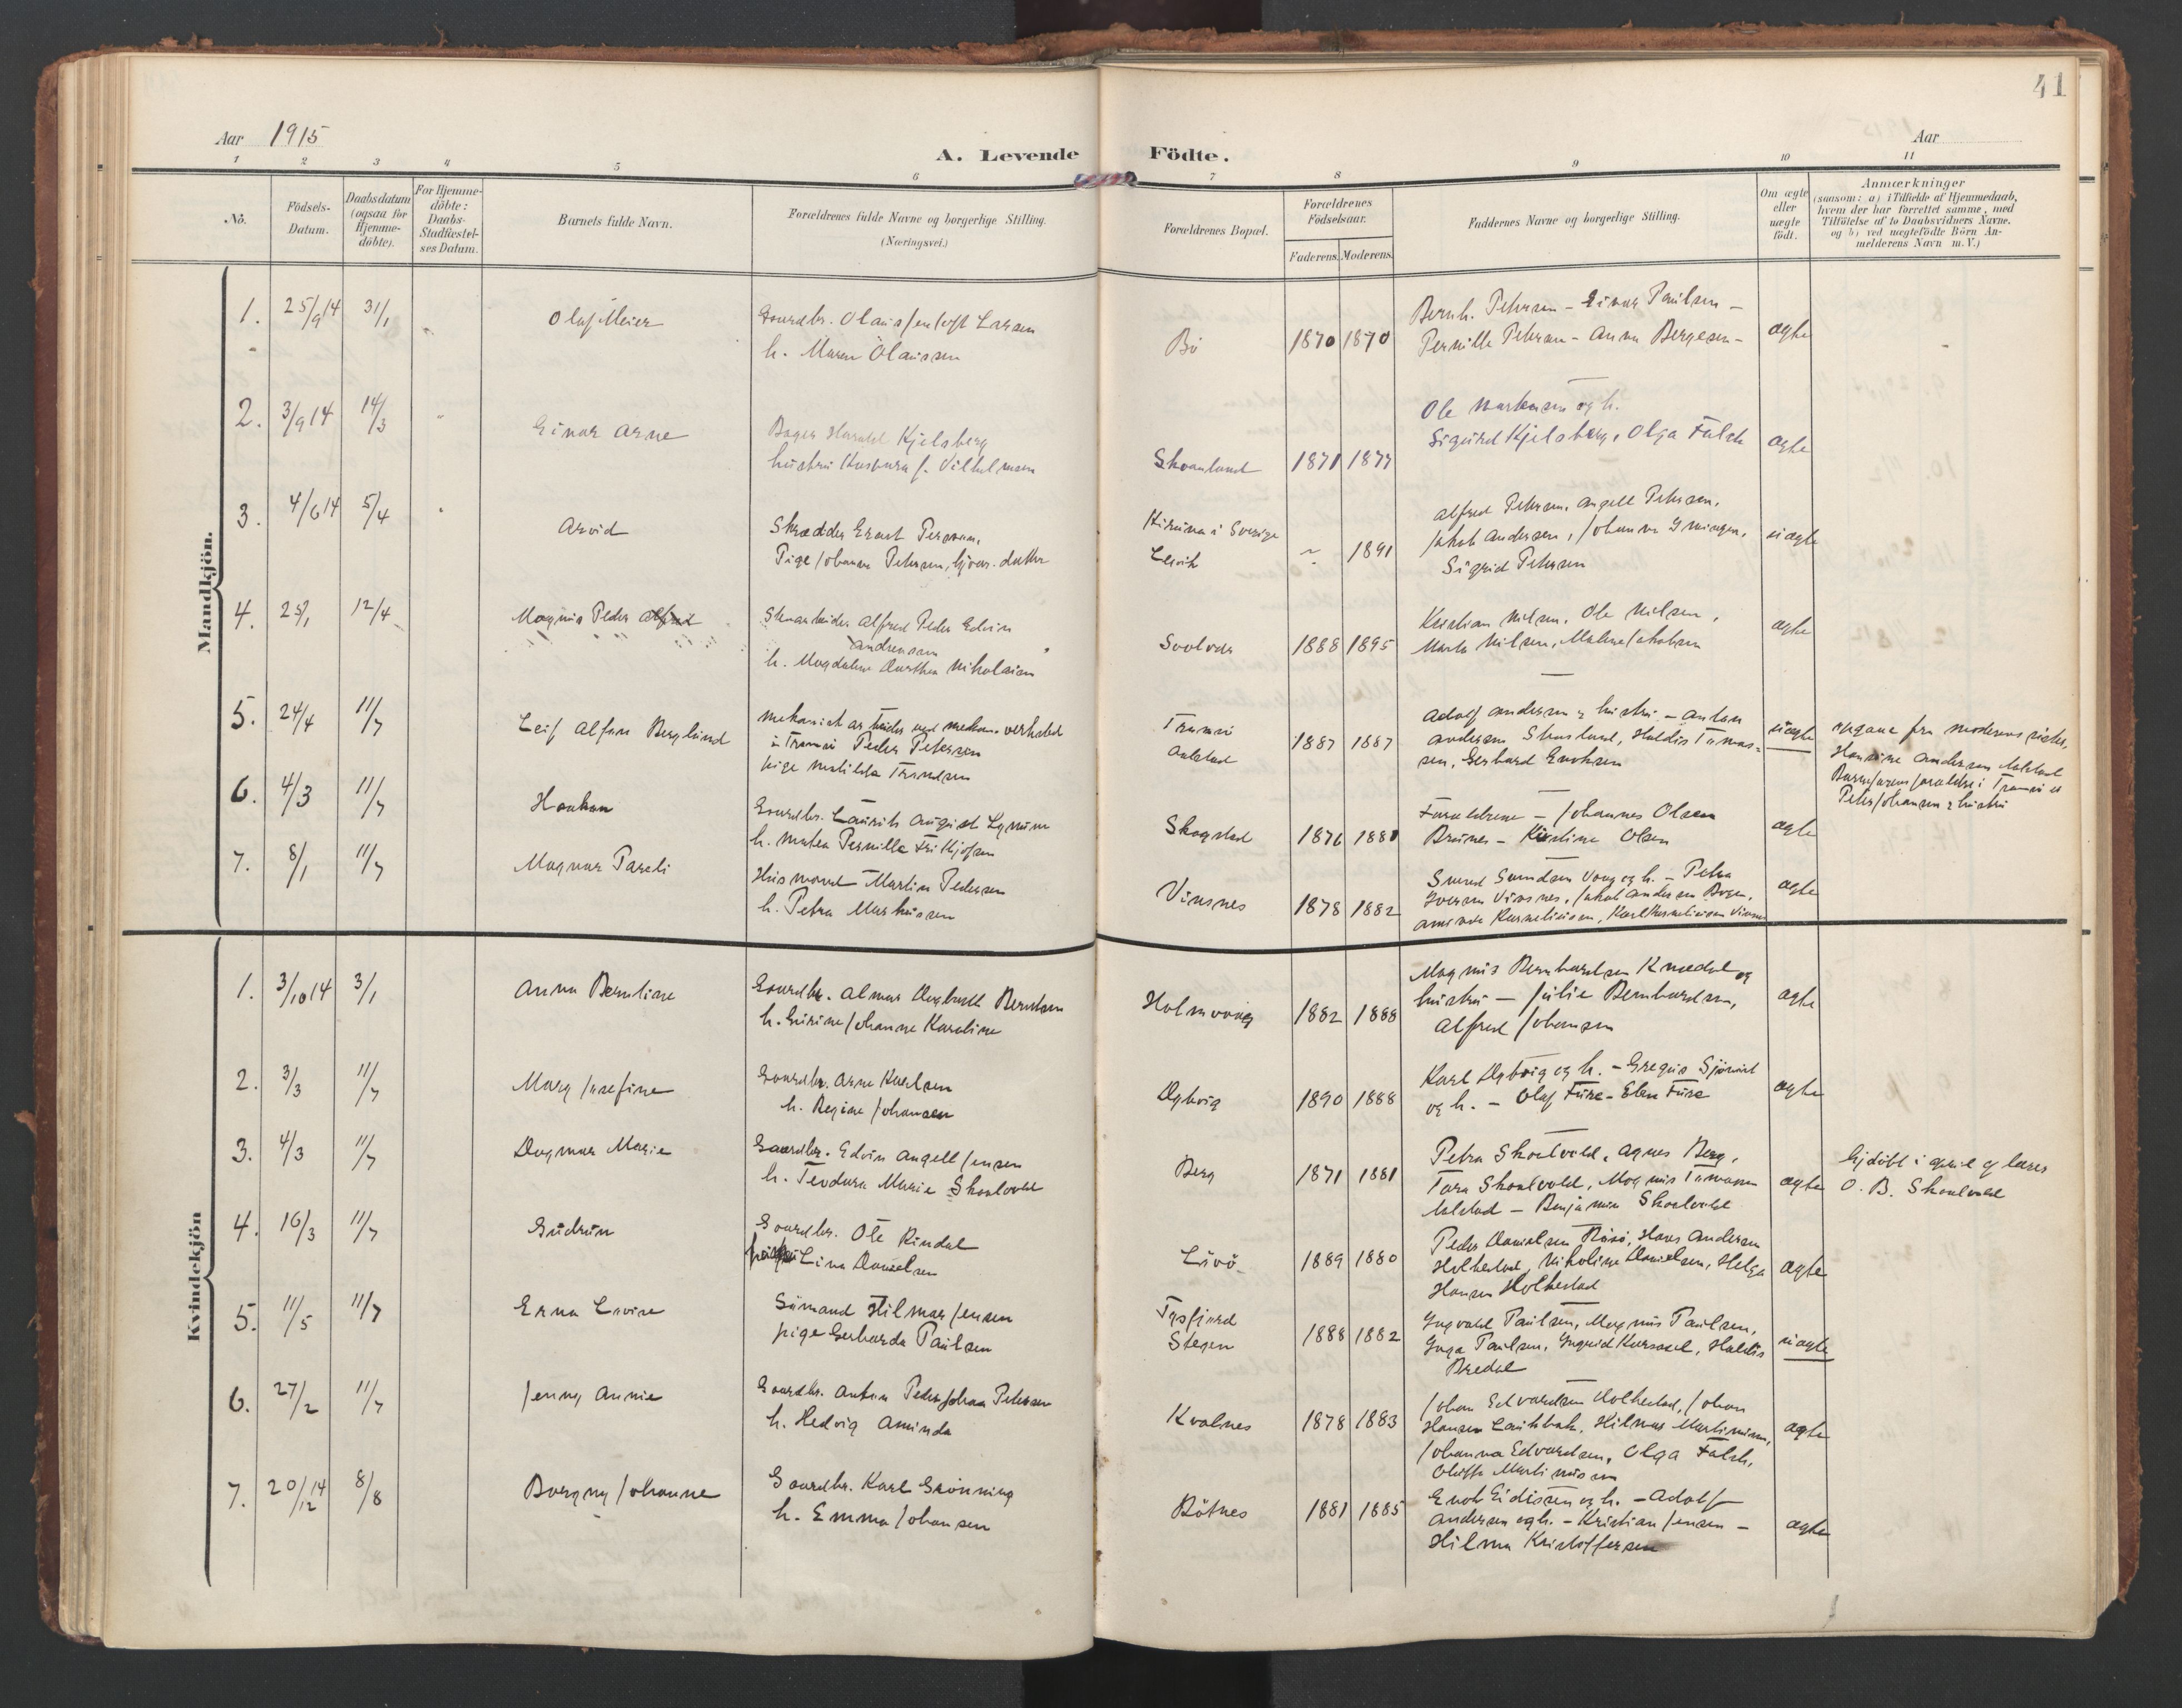 41
Aar 1915
Aar
A. Levende Födte.
1 2 3 4 5 6 7 8 9 10 11
No.
Födsels-
Datum.
Daabsdatum
(ogsaa for
Hjemme-
döbte).
For Hjemme-
döbte:
Daabs-
Stadfæstel-
ses Datum.
Barnets fulde Navn.
Forældrenes fulde Navne og borgerlige Stilling.
(Næringsvei.)
Forældrenes Bopæl.
Forældrenes
Födselsaar.
Faderens. Moderens.
Faddernes Navne og borgerlige Stilling.
Om ægte
eller
uægte
födt.
Anmærkninger
(saasom: a) i Tilfælde af Hjemmedaab,
hvem der har forrettet samme, med
Tilföielse af to Daabsvidners Navne.
og b) ved uægtefödte Börn An-
melderens Navn m. V.)
Mandkjön.
1. 25/9 14 31/1 Olaf Meier
Gaardbr. Olaus Larsen
h. Maren Olaussen
Bö 1870 1870
Bernh. Petersen - Einar Paulsen -
Pernille Petersen - Anna Bergesen -
ægte
2. 3/9 14 14/3 " Einar Arne
Bager Harald Kjelsberg
hustru f. Vilhelmsen
Skaanland 1871 1877
Ole Markussen og h.
Sigurd Kjelsberg, Olga Falch
ægte
3. 4/6 14 5/4 Arvid
Skrædder Ernst Persson,
Pige Johanna Petersen, datter
Kiruna i Sverige
Levik
~ 1891
Alfred Petersen, Angell Petersen,
Jakob Andersen, Johanna
Sigrid Petersen
uægte
4. 25/1 12/4 Magnus Peder Alfred
Alfred Peder Edvin
Andreassen
h. Magdalene Dorthea Nikolaisen
Svolvær 1888 1895
Kristian Nilsen, Ole Nilsen,
Marta Nilsen, Malene Jakobsen
ægte
5. 24/4 11/7 Leif Alfon Berglund
Mekanisk arbeider ved mekan. verksted
i Tromsö Peder Petersen
pige Matilde
Tromsö
Aalstad
1887 1887
Adolf Andersen & hustru - Anton
Andersen Skarslund, Haldis Tomas-
sen, Gerhard Enoksen
uægte
opgave fra moderens söster,
Hansine Andersen Aalstad
i Tromsö er
Peter Johansen & hustru
6. 4/3 11/7 Haakon
Gaardbr. Laurits August
h. Matea Pernille Fritkjofsen
Skogstad 1876 1881
Forældrene - Johannes Olsen
Brunes - Kristine Olsen
ægte
7. 8/1 11/7 Magnar Pareli
Husmand Martin Pedersen
h. Petra Markussen
Vinsnes 1878 1882
og h. - Petra
Iversen Vinsnes, Jakob Andersen Bogen,
Aminda Karneliussen, Karl Karneliussen Vinsnes
ægte
Kvindekjön
1. 3/10 14 3/1 Anna Bernline
Gaardbr. Almar Dagbrett Berntsen
h. Eurine Johanne Karoline
Holmvaag 1882 1888
Magnus Bernhardsen Knædal og
hustru - Julie Bernhardsen,
Alfred Johansen
ægte
2. 3/3 11/7 Mary Josefine
Gaardbr. Arne Karlsen
h. Regine Johansen
Dybvig 1890 1888
Karl Dybvig og h. - Gregus
og h. - Olaf Furre - Elen Furre
ægte
3. 4/3 11/7 Dagmar Marie
Gaardbr. Edvin Angell Jensen
h. Teodora Marie Skotvold
Berg 1871 1881
Petra Skotvold, Agnes Berg,
Tora Skotvold, Magnus Tomassen
Aalstad - Benjamin Skotvold
ægte
hjdöbt i april af lærer
O. B. Skotvold
4. 16/3 11/7 Gudrun
Gaardbr. Ole Rindal
Lina Danielsen
Lövö 1889 1880
Peder Danielsen Rösö, Hans Andersen
Holkestad, Nikoline Danielsen, Helga
Hansen Holkestad
ægte
5. 11/5 11/7 Erna Lovise
Sömand Hilmar Jensen
pige Gerharda Paulsen
Tysfjord
Stegen
1888 1882
Ingvald Paulsen, Magnus Paulsen,
Inga Paulsen, Ingrid, Haldis
Bredal
uægte
6. 27/2 11/7 Jenny Annie
Gaardbr. Anton Peder Johan Petersen
h. Hedvig Aminda
Kvalnes 1878 1883
Johan Edvardsen Holkestad, Johan
Hansen Laukbak, Hilmar Martinussen,
Johanna Edvardsen, Olga Falch,
Oluffa Martinussen
ægte
7. 20/12 14 8/8 Borgny Johanne
Gaardbr. Karl Grönning
h. Emma Johansen
Bötnes 1881 1885
Enok Eidissen og h. - Adolf
Andersen og h. - Kristian Jensen -
Hilma Kristoffersen
ægte